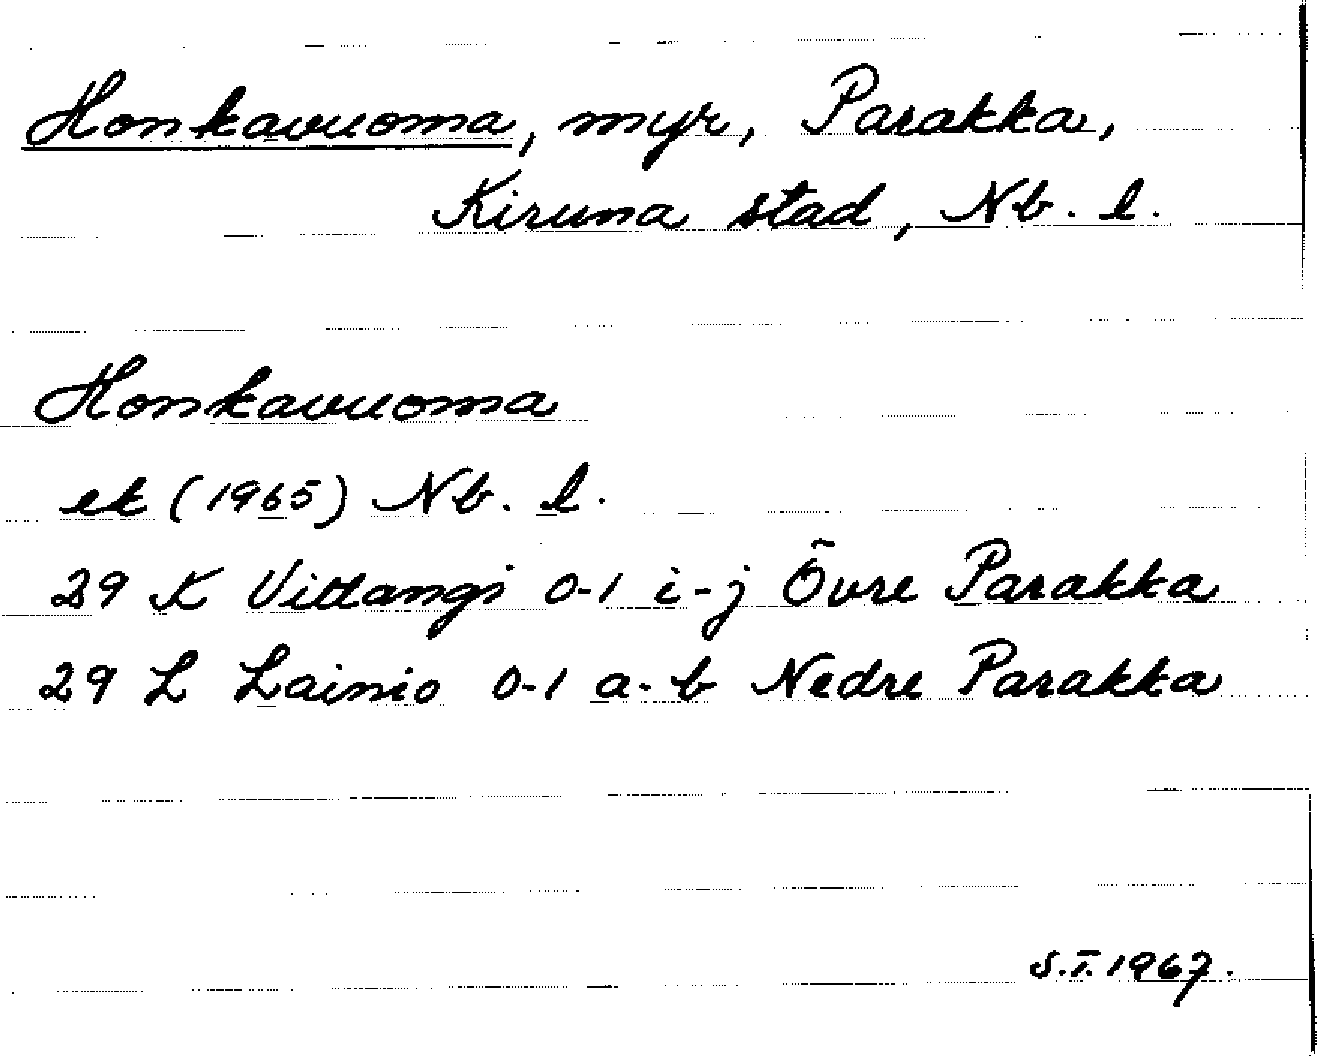 Honkavuoma, myr, Parakka,
Kiruna stad, Nb. l.
Honkavuoma
ek (1965) Nb. l.
29 K Vittangi 0-1 i-j Övre Parakka
29 L Lainio 0-1 a-b Nedre Parakka
S.T. 1967.